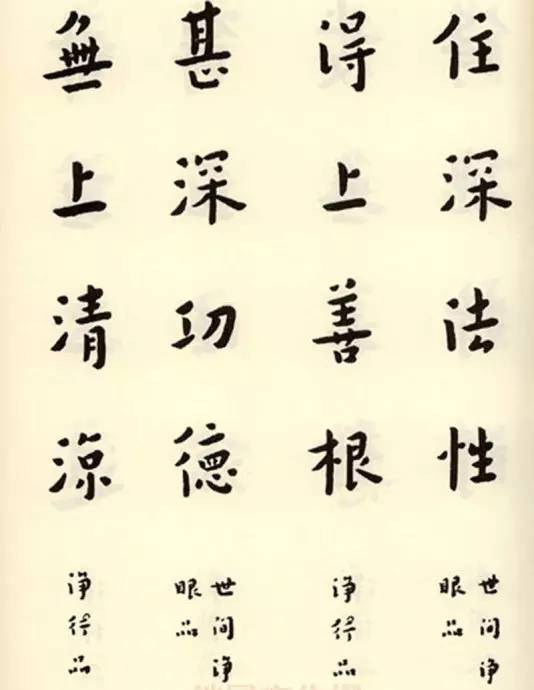 住深法性
世间淨
眼品
得上善根
淨行品
甚深功德
世间淨
眼品
無上清涼
淨行品